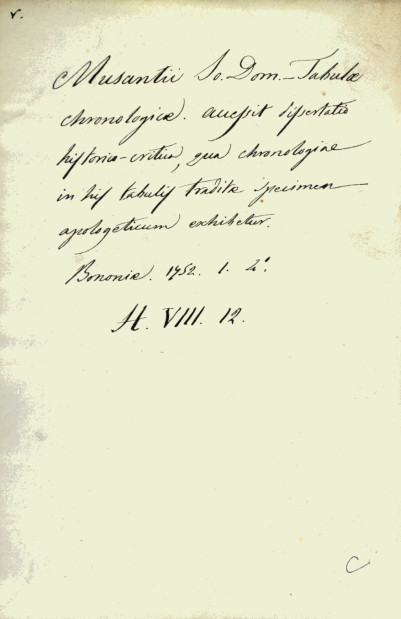 v.
Musantii Jo. Dom. - Tabulæ
chronologicæ. accessit dissertatio
historico-critica, qua chronologiae
in his tabulis traditæ specimen
apologeticum exhibetur.
Bononiæ. 1752. 1. 4°.
H. VIII. 12.
C